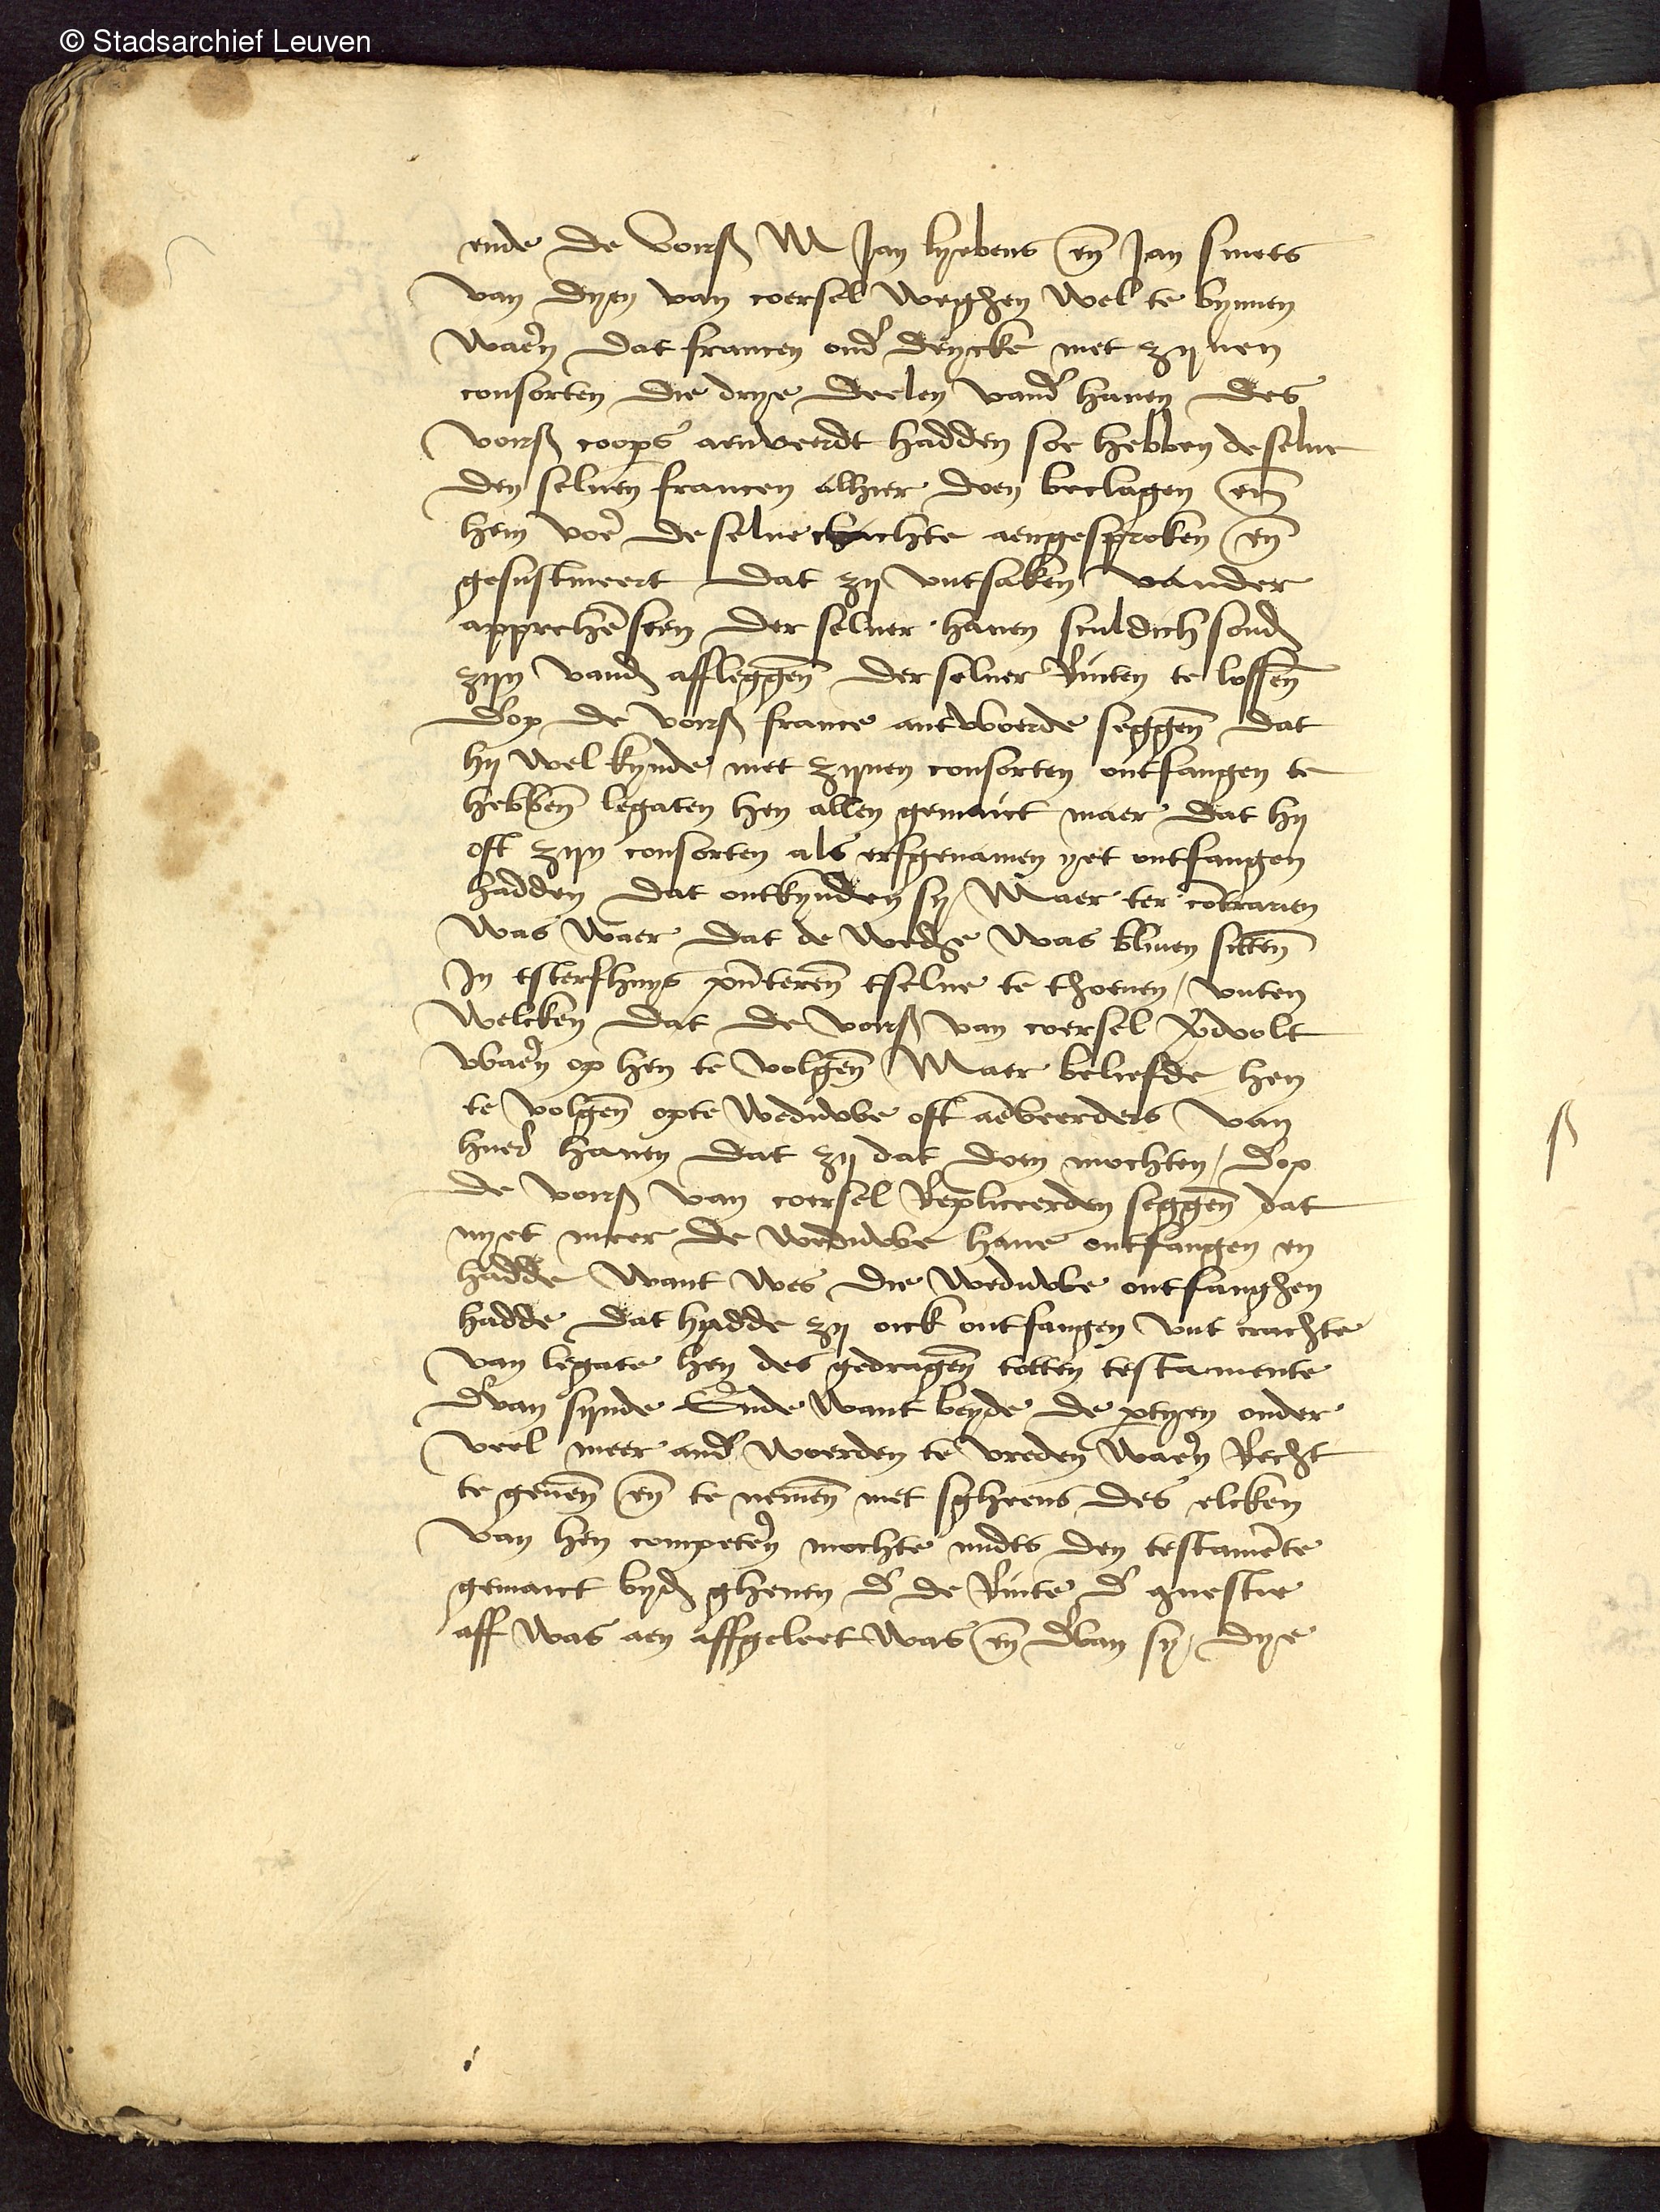 © Stadsarchief Leuven
ende de voirs M Jan lyebens en Jan smets
van dyen van coersel weghen wel te bynnen
waren dat francen vander drycke met zynen
consorten die drye deelen vander haven des
voirs coops aenveerdt hadden soe hebben deselve
den selven francen alhier doen beclagen en
hem voer deselve chachte aengesproken en
gesustineert dat zy uutsaken vander
apprehensien der selver haven sculdich soude
zyn vanden affleggen der selver Rinten te lossen
dop de voirs france antwoerde seggen dat
hy wel kynde met zynen consorten ontfangen te
hebben legaten hen allen gemaict maer dat hy
oft zyn consorten als erfgenamen yet ontfangen
hadden dat ontkynden sy Maer ter contrarien
was waer dat de wedue was bliven sitten
In tsterfhuys presenteren tselve te thoenen / uuten
welcken dat de voirs van coersel verdolt
waeren op hen te volgen Maer beliefde hen
te volgen opte weduwe oft aenveerders van
huer haven dat zy dat doen mochten / dop
de voirs van coersel Repliceerden seggen dat
nyet meer de weduwe have ontfangen en
hadde want wes die weduwe ontfanghen
hadde dat hadde zy oick ontfangen uut crachte
van legate hen des gedragen totten testamente
dvan synde Ende want beyde de ptyen onder
veel meer ander woerden te vreden waren Recht
te geven en te nemen met sgheens des elcken
van hen competeren mochte mids den testamente
gemaict byden ghenen der de Rinte der questie
aff was aen affgeleet was en dvan sy / dye